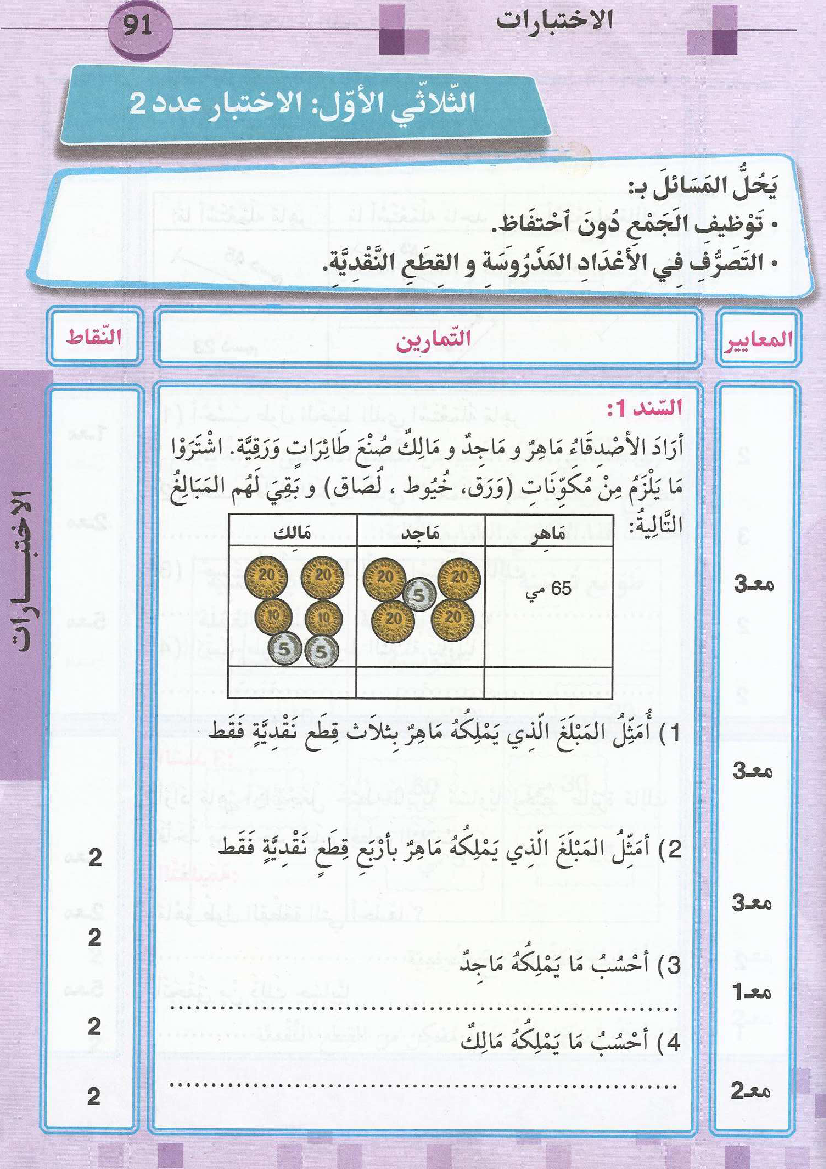 الاختبارات
91
الثّلاثّي الأوّل: الاختبار عدد 2
يَحُلُّ المَسَائلَ بـ:
• تَوْظيفِ الجَمْعِ دُونَ ٱحْتفَاظ.
• التَصَرُّفِ فِي الأعْدَادِ المَدْرُوسَةِ و القِطَعِ النَّقْديَّةِ.
المعايير
التّمارين
النّقاط
السّند 1:
أرَادَ الأصْدِقَاءُ مَاهِرٌ و مَاجِدٌ و مَالِكٌ صُنْعَ طَائِرَاتٍ وَرَقِيَّة. اشْتَرَوْا
مَا يَلْزَمُ مِنْ مُكَوِّنَاتِ (وَرَق، خُيُوط ، لُصَاق) و بَقِيَ لَهُم المَبَالِغُ
التَّالِيةُ:
مَاهِر
مَاجِد
مَالِك
65 مي
20 20 5 20 20
20 20 10 10 5 5
مع3
1) أُمَثِّلُ المَبْلَغَ الّذِي يَمْلِكُهُ مَاهِرٌ بِثلاَث قِطَع نَقْدِيَّةٍ فَقَط
مع3
2) أمَثِّلُ المَبْلَغَ الّذِي يَمْلِكُهُ مَاهِرٌ بأرْبَع قِطَعٍ نَقْدِيَّةٍ فَقَط
2
مع3
2
3) أحْسُبُ مَا يَمْلِكُهُ مَاجِدٌ
مع1
2
4) أحْسُبُ مَا يَمْلِكُهُ مَالِكٌ
مع2
2
الاختبـــارات